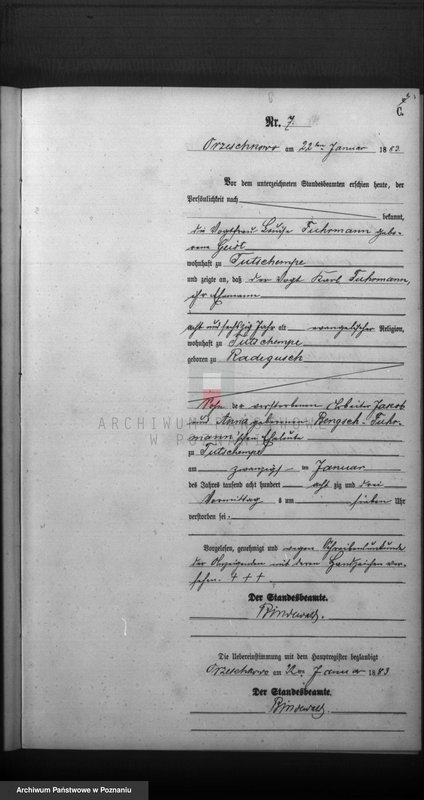 C.
Nr. 7.
Orzeschkowo am 22ten Januar 1883
Vor dem unterzeichneten Standesbeamten erschien heute, der
Persönlichkeit nach
bekannt,
die Vogtfrau Louise Fuhrmann gebo-
rene Geist
wohnhaft zu Tutschempe
und zeigte an, daß der Vogt Karl Fuhrmann,
ihr Ehemann
acht und sechszig Jahr alt evangelischer Religion,
wohnhaft zu Tutschempe
geboren zu Radegusch
Sohn der verstorbenen Arbeiter Jakob
und Anna geborenen Rengsch-Fuhr-
mann'schen Eheleute
ARCHIWUM PAŃSTWOWE
W POZNANIU
zu Tutschempe
am zwanzigsten Januar
des Jahres tausend acht hundert achtzig und drei
Vormittags um sieben Uhr
verstorben sei.
Vorgelesen, genehmigt und wegen Schreibensunkunde
der Anzeigenden mit deren Handzeichen ver-
sehen. +++
Der Standesbeamte.
Bindewald.
Die Uebereinstimmung mit dem Hauptregister beglaubigt
Orzeschkowo am 22ten Januar 1883
Der Standesbeamte.
Bindewald.
Archiwum Państwowe w Poznaniu